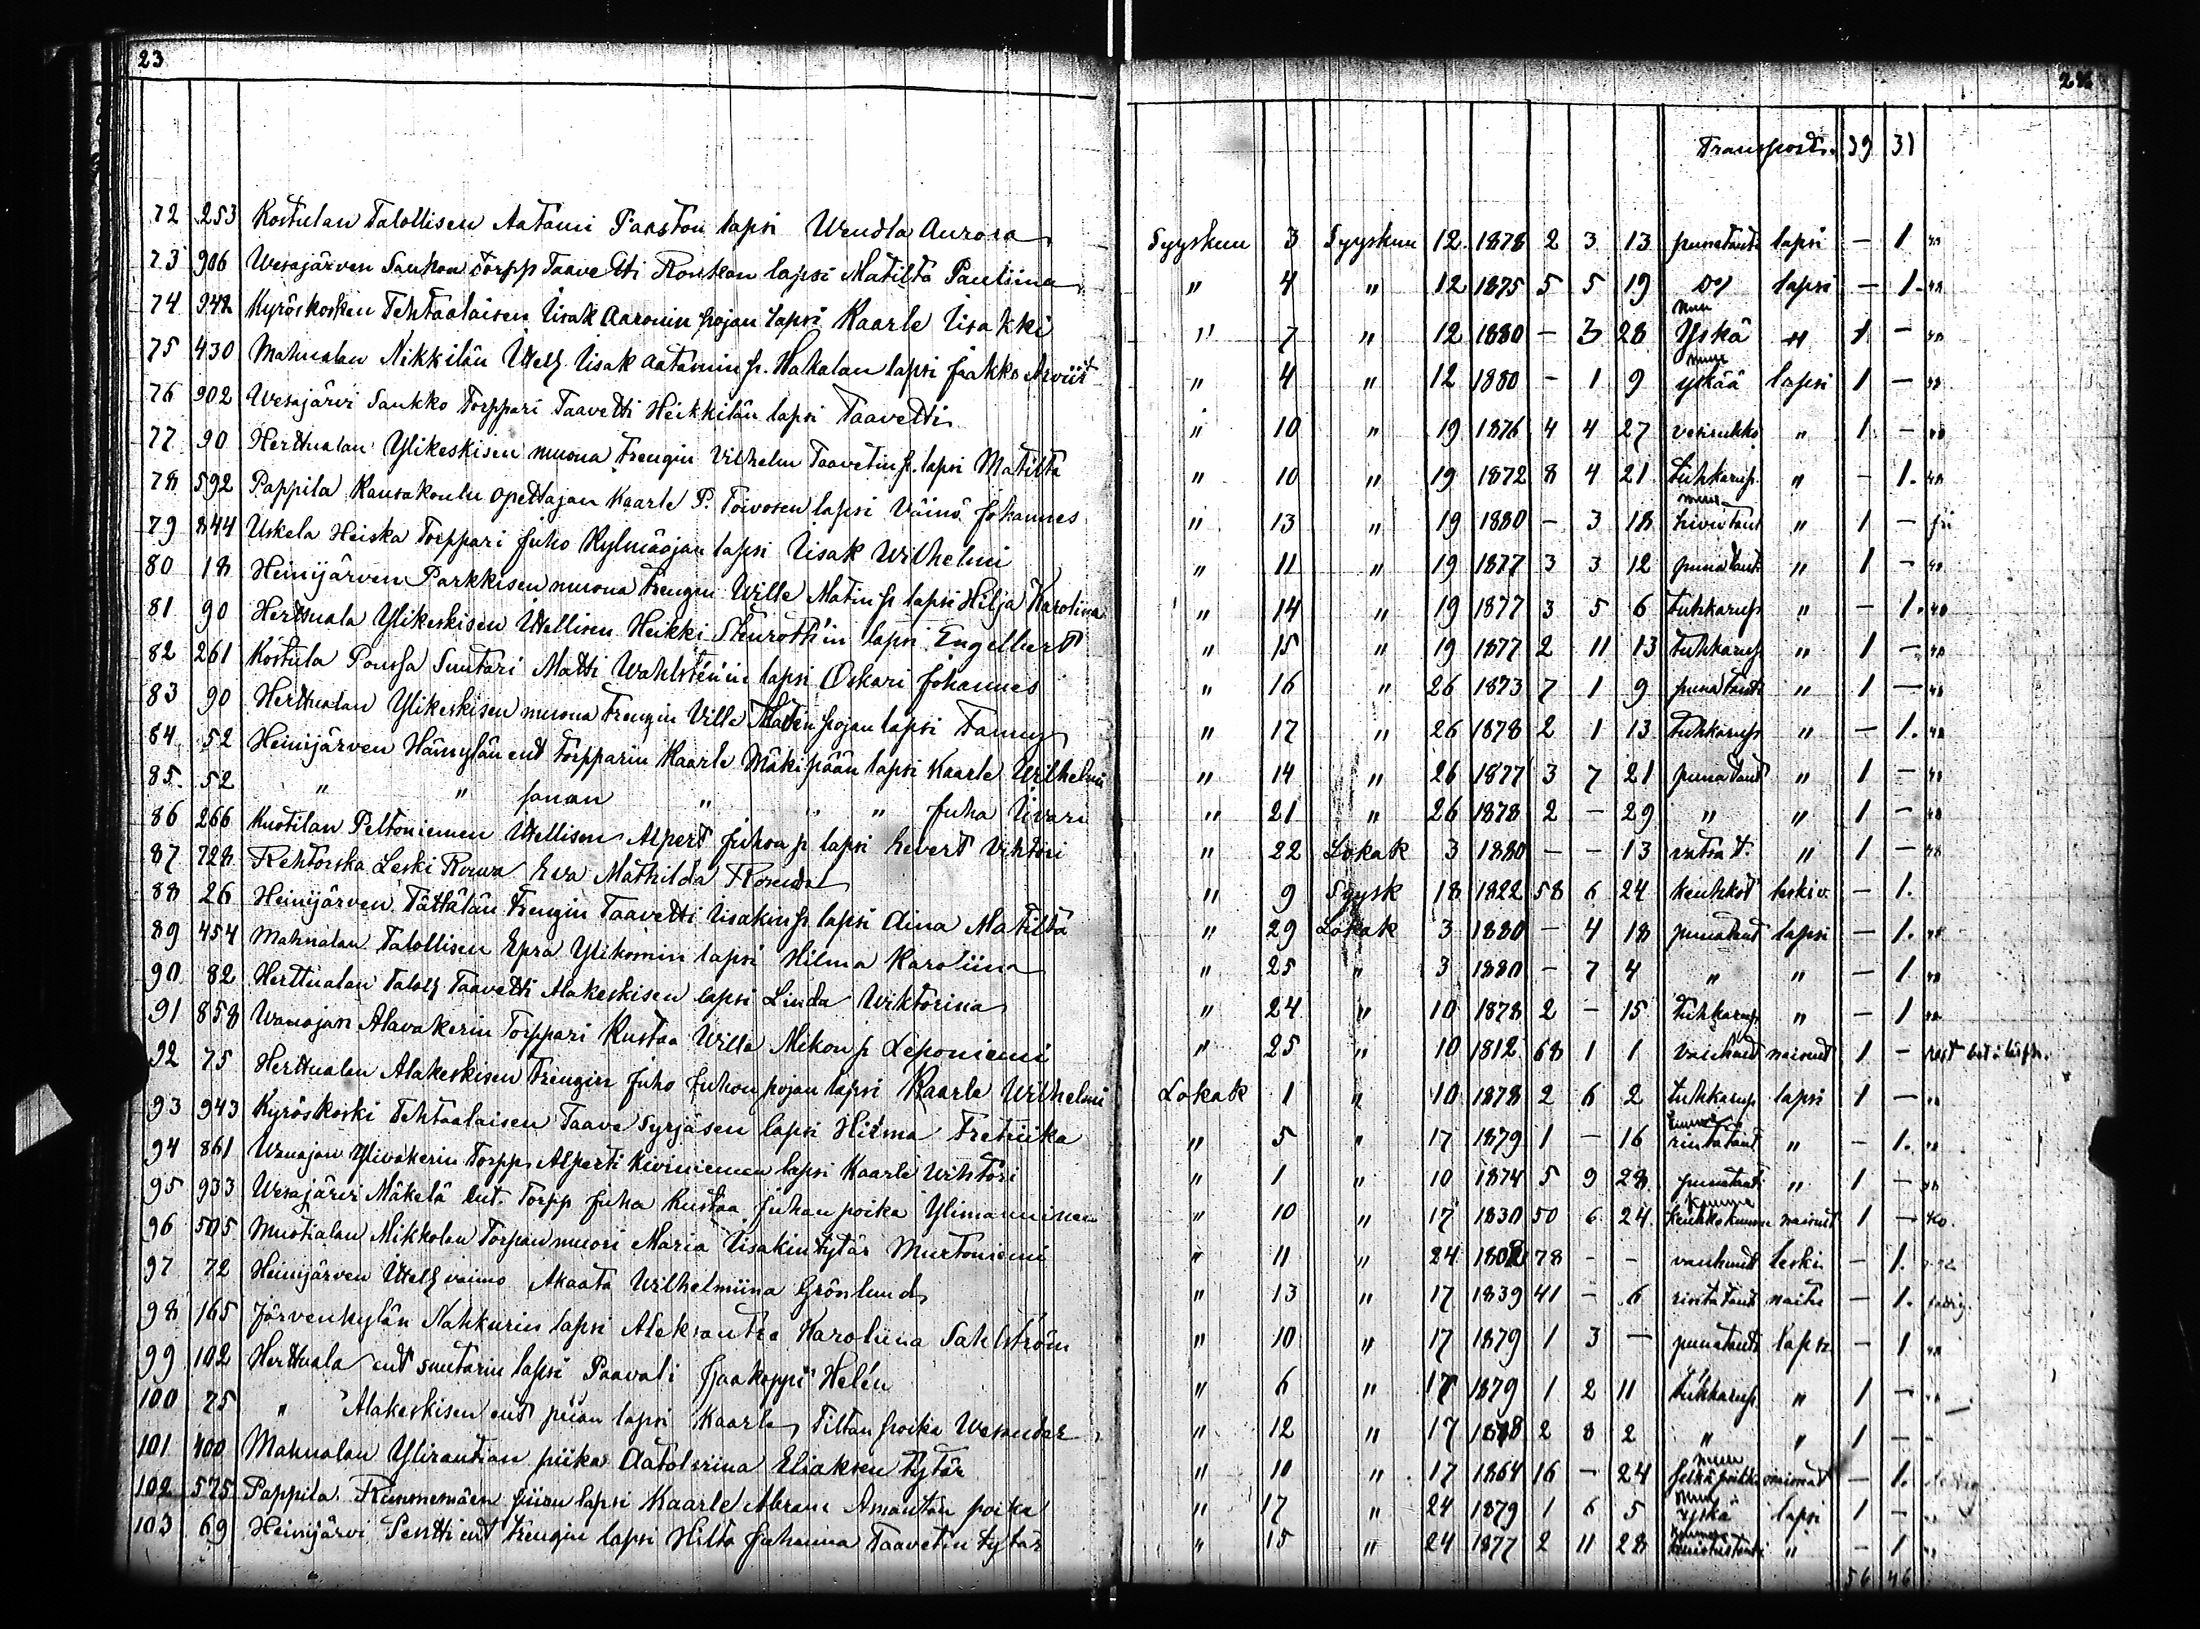 23
24
Transport. 39 31
72 253 Kostulan Talollisen Aatami Paaston lapsi Wendla Aurora Syyskuu 3 Syyskuu 12 1878 2 3 13 punataut lapsi — 1 "
73 906 Wesajärven Saukon Torpp Taavetti Ronkan lapsi Matilta Pauliina " 4 " 12 1875 5 5 19 Do lapsi — 1. "
74 942 Kyröskosken Tehtaalaisen Iisak Aaronin pojan lapsi Kaarle Iisakki " 7 " 12 1880 — 3 28 muu Yskä " 1 — "
75 430 Mahnalan Nikkilän Itell. Iisak Aatamin p. Hakalan lapsi Jaakko Arviit " 4 " 12 1880 — 1 9 muu yskää lapsi 1 — "
76 902 Wesajärvi Saukko Torppari Taavetti Heikkilän lapsi Taavetti " 10 " 19 1876 4 4 27 vesirukko " 1 — "
77 90 Herttualan Ylikeskisen muona trengin Vilhelm Taavetin p. lapsi Matilta " 10 " 19 1872 8 4 21 tuhkarup " — 1. "
78 592 Pappila Kansakoulu opettajan Kaarle P. Toivosen lapsi Väinö Johannes " 13 " 19 1880 — 3 18 muu hivutaut " 1 —
79 844 Uskela Heiska Torppari Juho Kylmäojan lapsi Iisak Wilhelmi " 11 " 19 1877 3 3 12 punataut " 1 — "
80 18 Heinijärven Parkkisen muona trengin Wille Matin p lapsi Hilja Karolina " 14 " 19 1877 3 5 6 tuhkarup " — 1. "
81 90 Herttuala Ylikeskisen Itellisen Heikki Stenrothin lapsi Engelbert " 15 " 19 1877 2 11 13 tuhkarup " 1 — "
82 261 Kostula Poussa Suutari Matti Wahlstenin lapsi Oskari Johannes " 16 " 26 1873 7 1 9 punataut " 1 — "
83 90 Herttualan Ylikeskisen muona trengin Ville Matin pojan lapsi Fanny " 17 " 26 1878 2 1 13 tuhkarup " — 1. "
84 52 Heinijärven Hämylän ent Torpparin Kaarle Mäkipään lapsi Kaarle Wilhelmi " 14 " 26 1877 3 7 21 punataut " 1 — "
85. 52 " " sanan " " " Juha Iivari " 21 " 26 1878 2 — 29 " " 1 — "
86 266 Kustilan Peltoniemen Itellisen Alpert Juhon p lapsi Evert Vihtori " 22 Lokak 3 1880 — — 13 vatsa t. " 1 — "
87 728 Rehtorska Leski Rouva Eva Mathilda Rosendal " 9 Syysk 18 1822 58 6 24 keuhkot leskiv. — 1.
88 26 Heinijärven Tättälän trengin Taavetti Iisakin p lapsi Aina Matilta " 29 Lokak 3 1880 — 4 18 punataut lapsi — 1. "
89 454 Mahnalan Talollisen Epra Ylikomin lapsi Hilma Karoliina " 25 " 3 1880 — 7 4 " " — 1. "
90 82 Herttualan Taloll Taavetti Alakeskisen lapsi Linda Wiktoriina " 24 " 10 1878 2 — 15 tuhkarup " — 1 "
91 858 Wanajan Alavakerin Torppari Kustaa Wille Mikon p Leponiemi " 25 " 10 1812 68 1 1 vanhuut nainut 1 —
92 75 Herttualan Alakeskisen trengin Juho Juhon pojan lapsi Kaarle Wilhelmi Lokak 1 " 10 1878 2 6 2 tuhkarup lapsi 1 — "
93 943 Kyröskoski Tehtaalaisen Taave Syrjäsen lapsi Hilma Fretriika " 5 " 17 1879 1 — 16 rintataut " — 1. "
94 861 Wanajan Ylivakerin Torpp. Alperti Kiviniemen lapsi Kaarle Wihtori " 1 " 10 1874 5 9 28 punataut " 1 — "
95 933 Wesajärvi Mäkelä ent. Torpp Juha Kustaa Juhan poika Ylimanninen " 10 " 17 1830 50 6 24 kuume keuhkokuume nainut 1 —
96 505 Muotialan Mikkolan Torpan muori Maria Iisakin tytär Murtoniemi " 11 " 24 1802 78 — — vanhuut leski — 1.
97 72 Heinijärven Itell vaimo Akaata Wilhelmiina Grönlund " 13 " 17 1839 41 — 6 rintataut naitu — 1.
98 165 Järvenkylän Nahkurin lapsi Aleksantra Karoliina Sahlström " 10 " 17 1879 1 3 — punataut lapsi — 1 "
99 102 Herttuala ent suutarin lapsi Paavali Jaakoppi Helén " 6 " 17 1879 1 2 11 tuhkarup " 1 — "
100 75 " Alakeskisen ent piian lapsi Kaarle Tiltan poika Wesander " 12 " 17 1878 2 8 2 " " 1 —
101 400 Mahnalan Ylirantian piika Aatolviina Eliaksen tytär " 10 " 17 1864 16 — 24 muu naimat — 1.
102 575 Pappila Rummemäen piian lapsi Kaarle Abram Amantan poika " 17 " 24 1879 1 6 5 muu yskä lapsi 1 — "
103 69 Heinijärvi Pentti ent trengin lapsi Hilta Johanna Taavetin tytär " 15 " 24 1877 2 11 28 " — 1 "
56 46